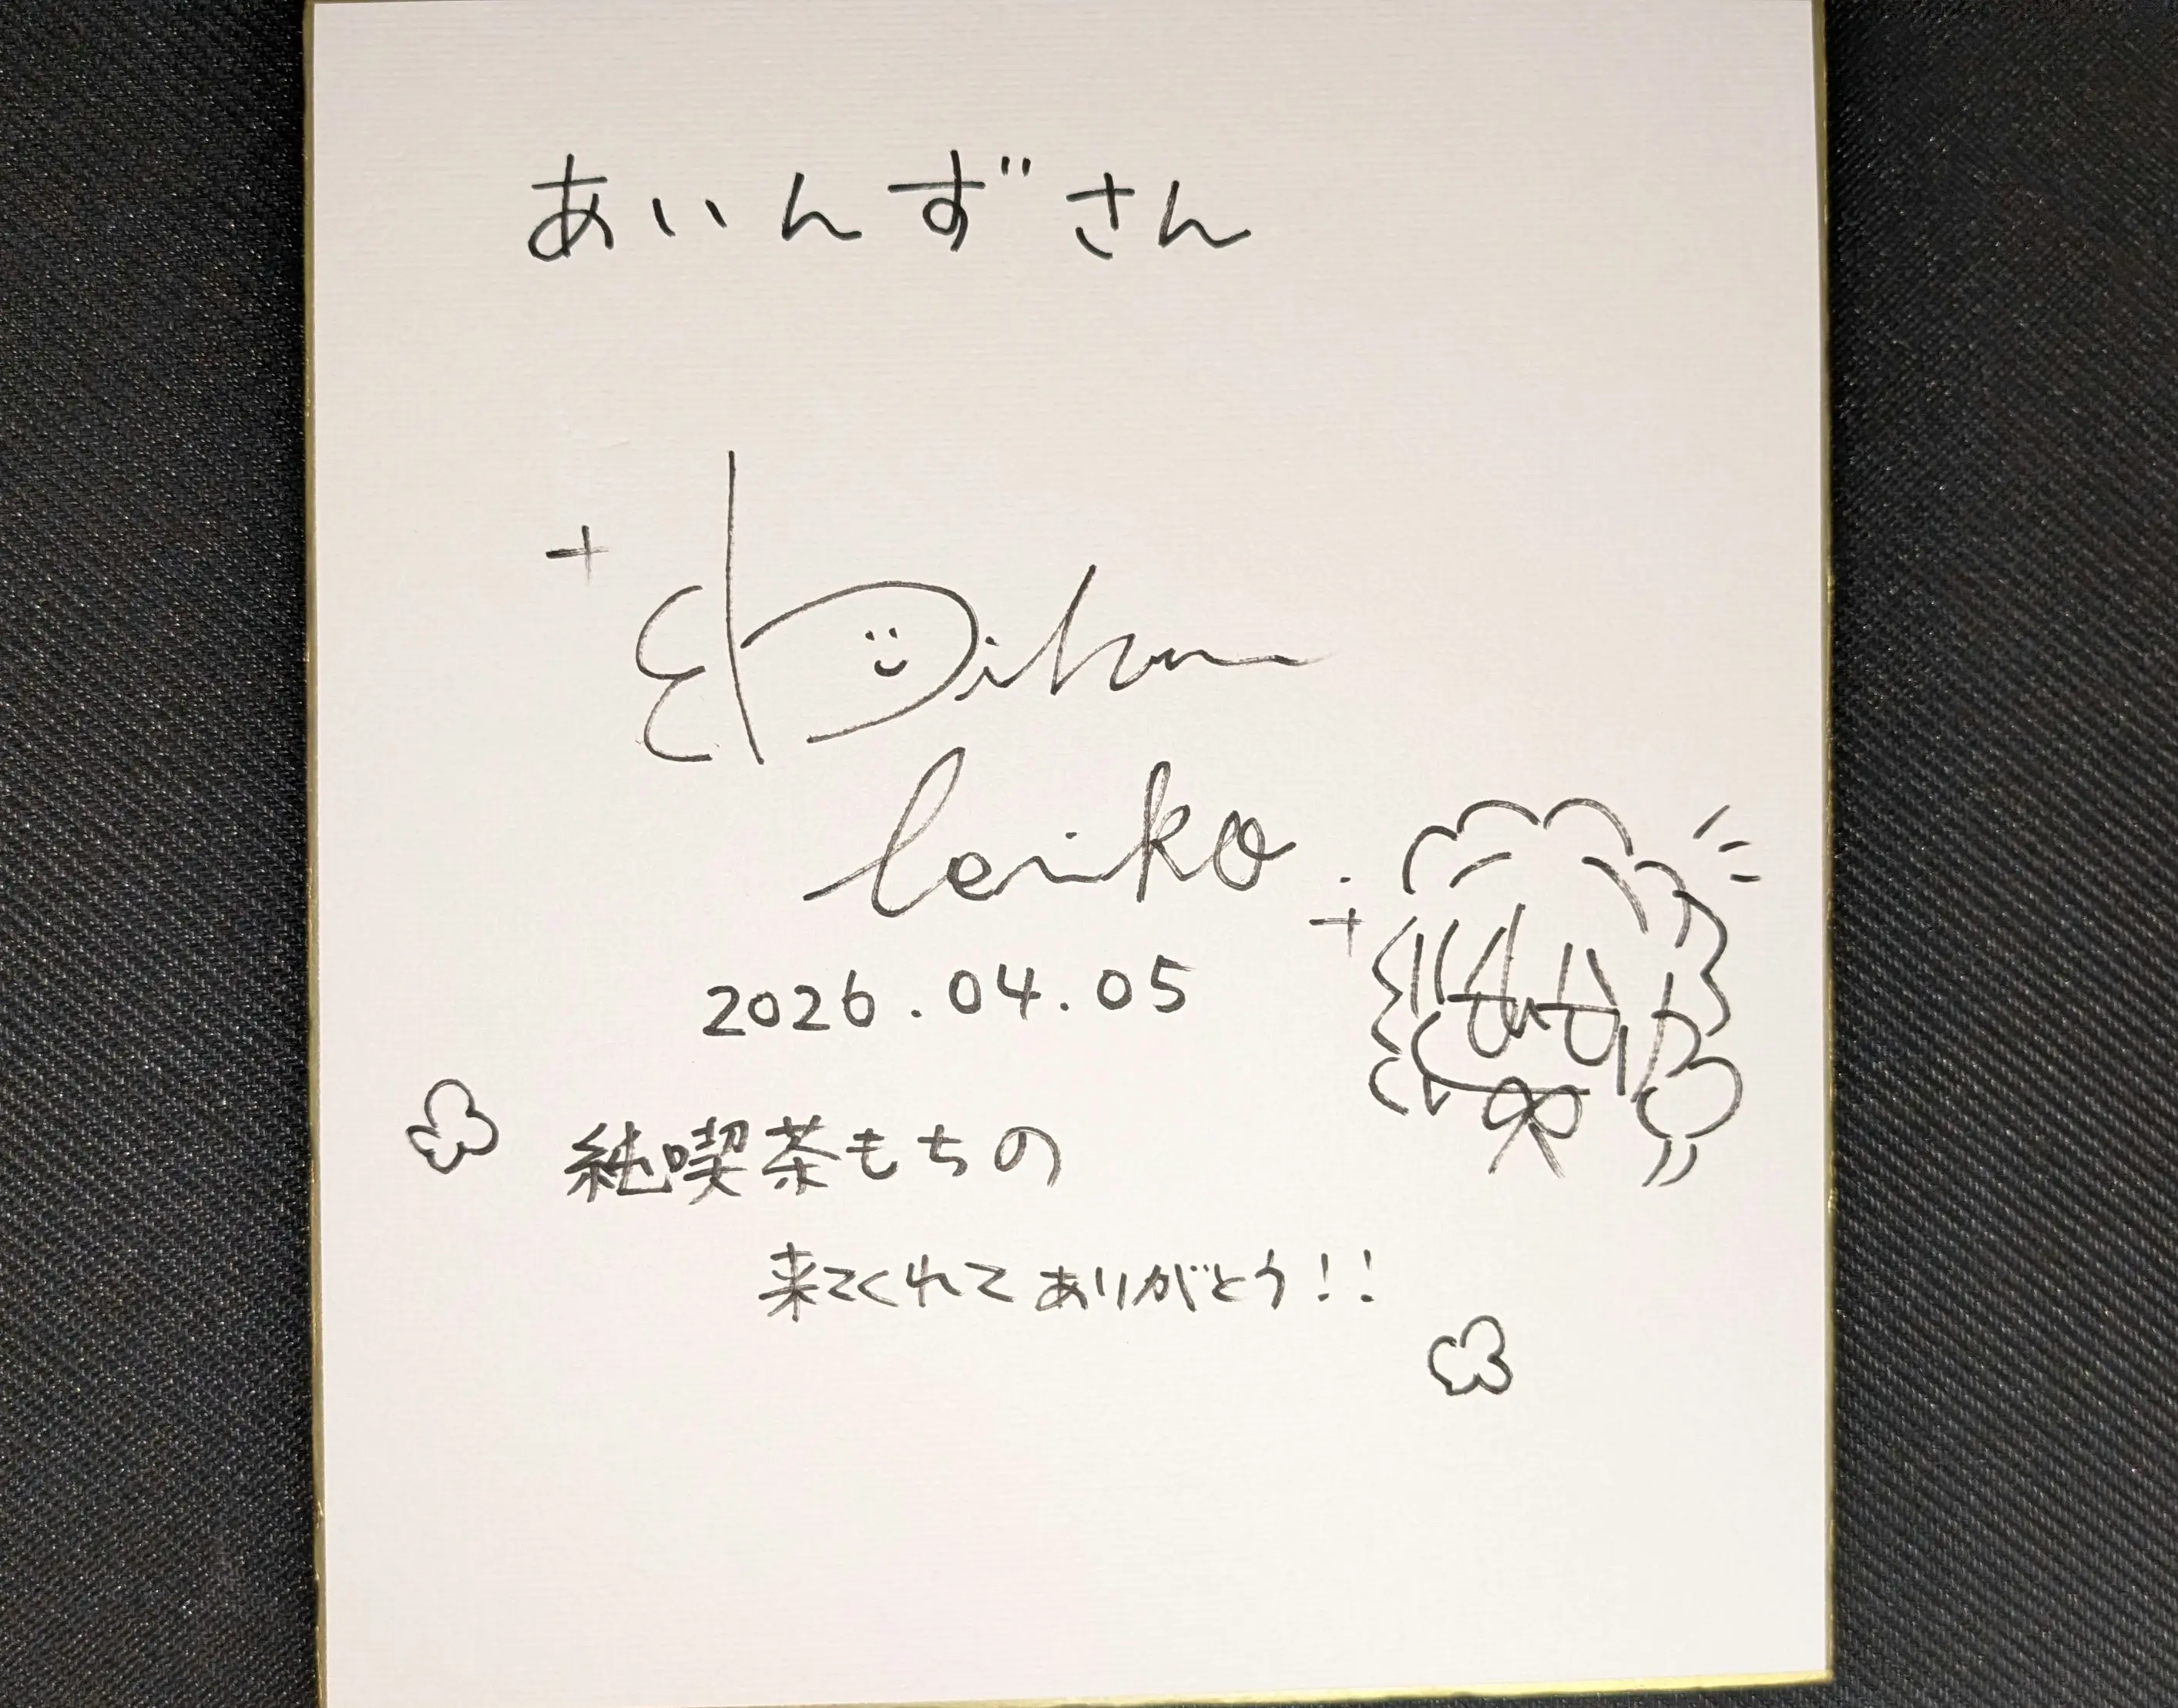 あいんずさん
2026.04.05
純喫茶もちの
来てくれてありがとう!!